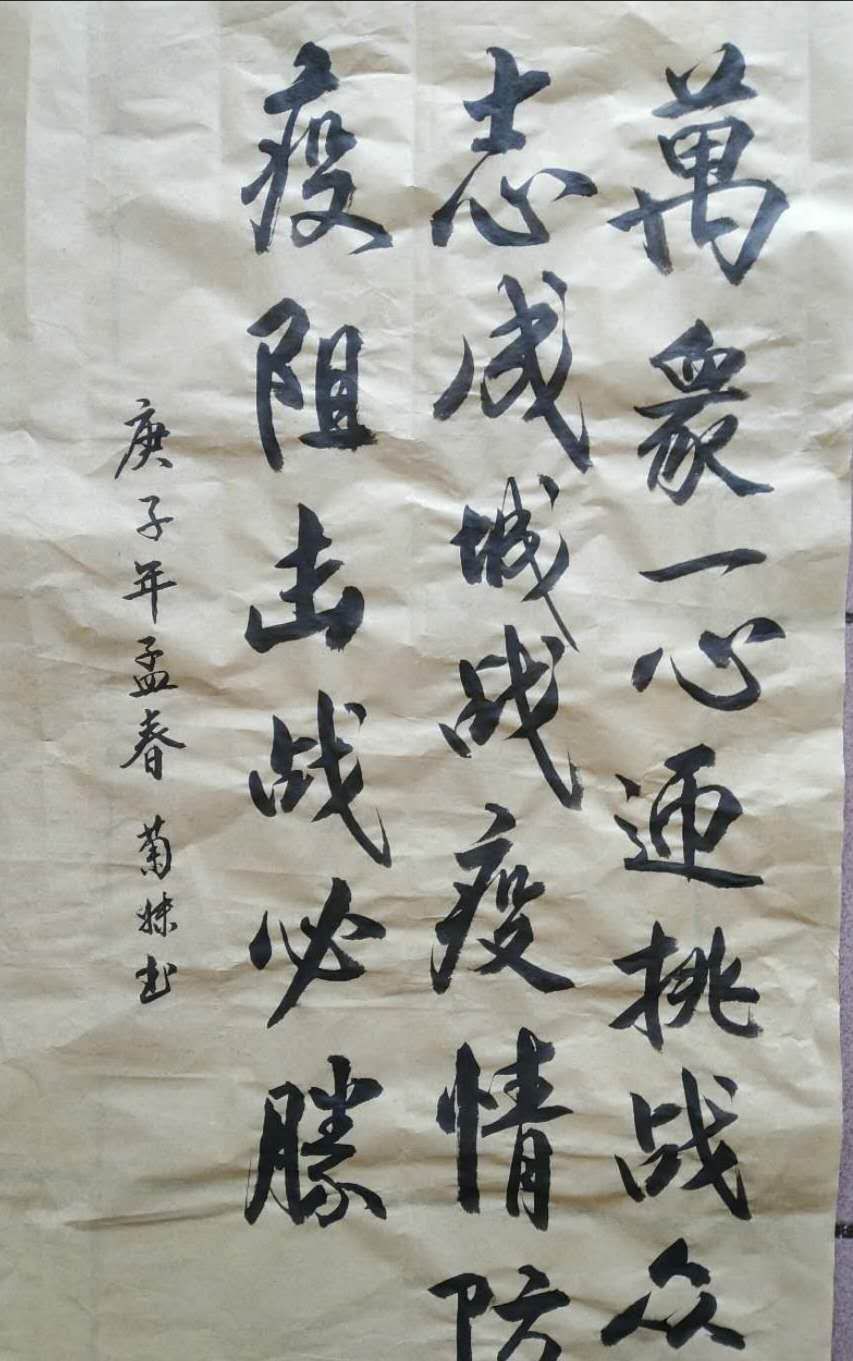 萬衆一心迎挑战众
志成城战疫情防
疫阻击战必勝
庚子年孟春 菊妹书